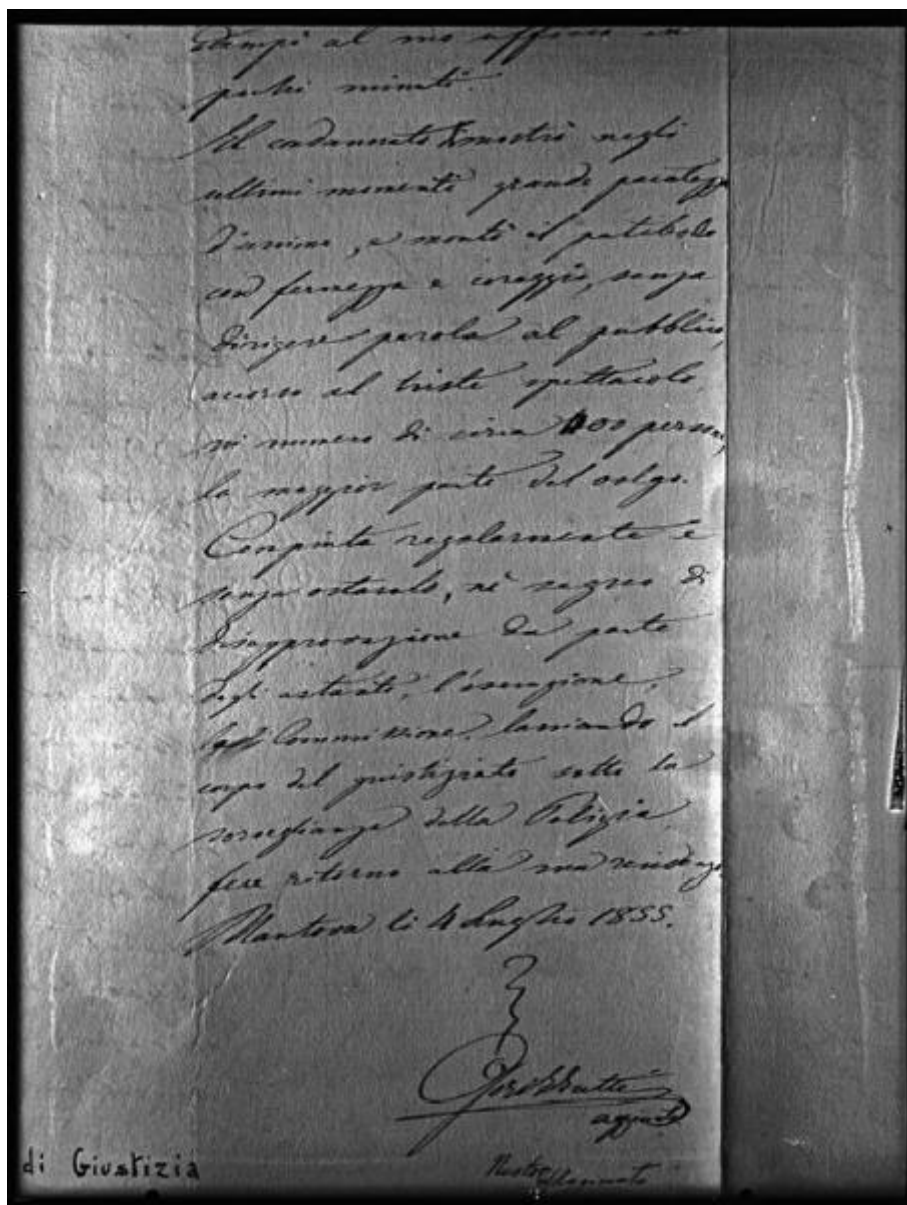 al suo officio in
pochi minuti.
Il condannato dimostrò negli
ultimi momenti grande pacatezza
d'animo, e montò il patibolo
con fermezza e coraggio, senza
dirigere parola al pubblico,
accorso al triste spettacolo
in numero di circa 400 persone,
la maggior parte del volgo.
Compiuta regolarmente e
senza ostacolo, nè segno di
disapprovazione da parte
degli astanti, l'esecuzione,
Commissione, lasciando il
corpo del giustiziato sotto la
sorveglianza della Polizia
fece ritorno alla sua residenza
Mantova li 4 Luglio 1855.
aggiunto
di Giustizia